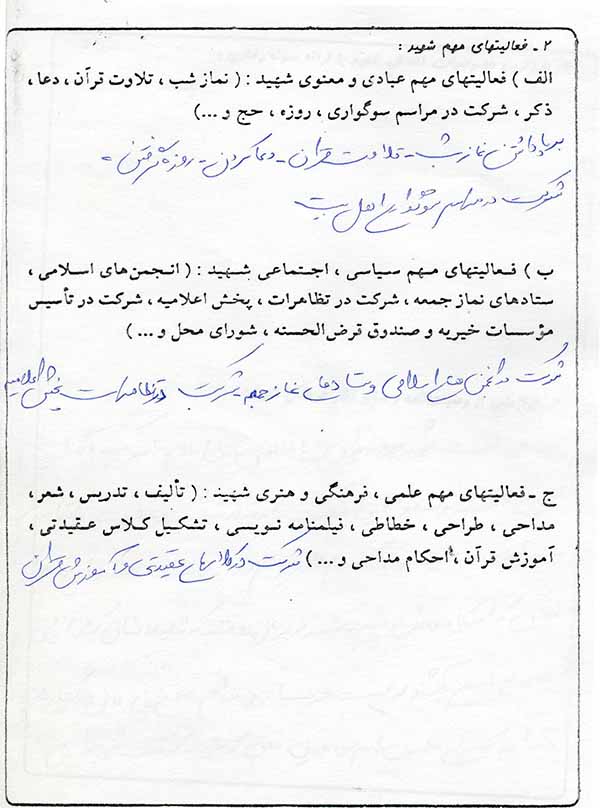 ۲ ـ فعالیتهای مهم شهید :
الف ) فعالیتهای مهم عبادی و معنوی شهید : ( نماز شب ، تلاوت قرآن ، دعا ،
ذکر ، شرکت در مراسم سوگواری ، روزه ، حج و ...)
برپا داشتن نماز شب - تلاوت قرآن - دعا کردن - روزه گرفتن -
شرکت در مراسم سوگواری اهل بیت
ب ) فعالیتهای مهم سیاسی ، اجتماعی شهید : ( انجمن‌های اسلامی ،
ستادهای نماز جمعه ، شرکت در تظاهرات ، پخش اعلامیه ، شرکت در تأسیس
مؤسسات خیریه و صندوق قرض‌الحسنه ، شورای محل و ... )
شرکت در انجمن های اسلامی و ستادهای نماز جمعه - شرکت در تظاهرات پخش اعلامیه
ج ـ فعالیتهای مهم علمی ، فرهنگی و هنری شهید : ( تألیف ، تدریس ، شعر ،
مداحی ، طراحی ، خطاطی ، فیلمنامه نویسی ، تشکیل کلاس عقیدتی ،
آموزش قرآن ، احکام مداحی و ... ) شرکت در کلاسهای عقیدتی و آموزش قرآن